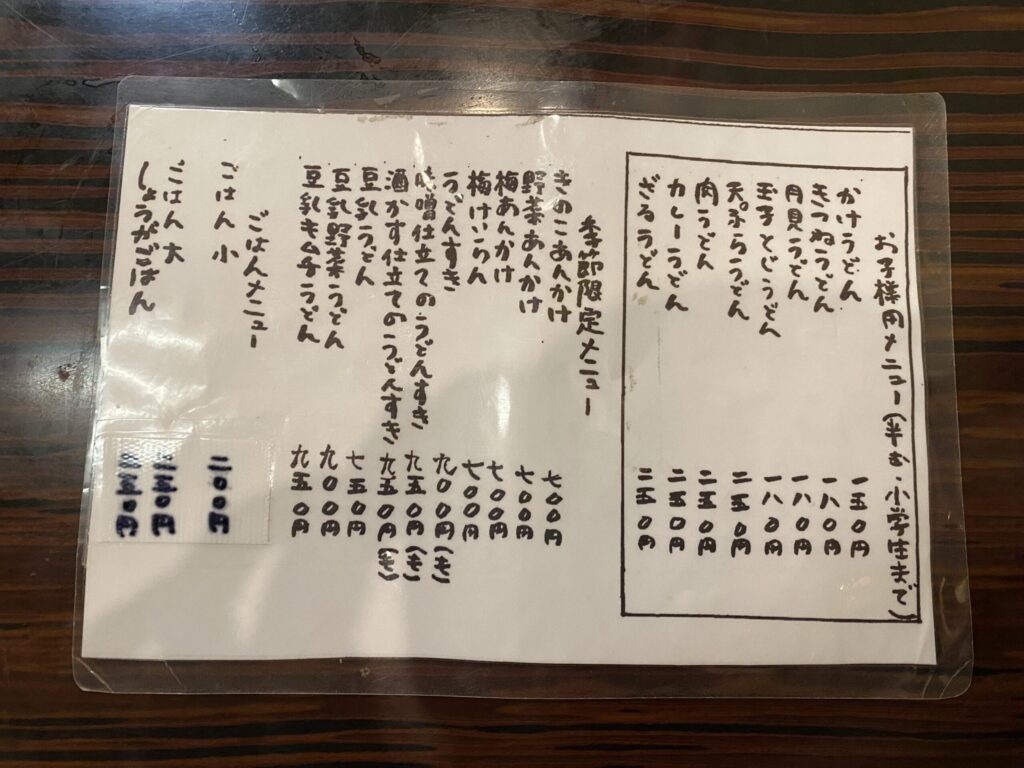 お子様用メニュー(半む・小学生まで)
かけうどん 一五〇円
きつねうどん 一八〇円
月見うどん 一八〇円
玉子とじうどん 一八〇円
天ぷらうどん 二五〇円
肉うどん 二五〇円
カレーうどん 二五〇円
ざるうどん 二五〇円
季節限定メニュー
きのこあんかけ 七〇〇円
野菜あんかけ 七〇〇円
梅あんかけ 七〇〇円
梅けいらん 七〇〇円
うどんすき 九〇〇円(も)
味噌仕立てのうどんすき 九五〇円(も)
酒かす仕立てのうどんすき 九五〇円(も)
豆乳うどん 七五〇円
豆乳野菜うどん 九〇〇円
豆乳キムチうどん 九五〇円
ごはんメニュー
ごはん 小 二〇〇円
ごはん 大
しょうがごはん